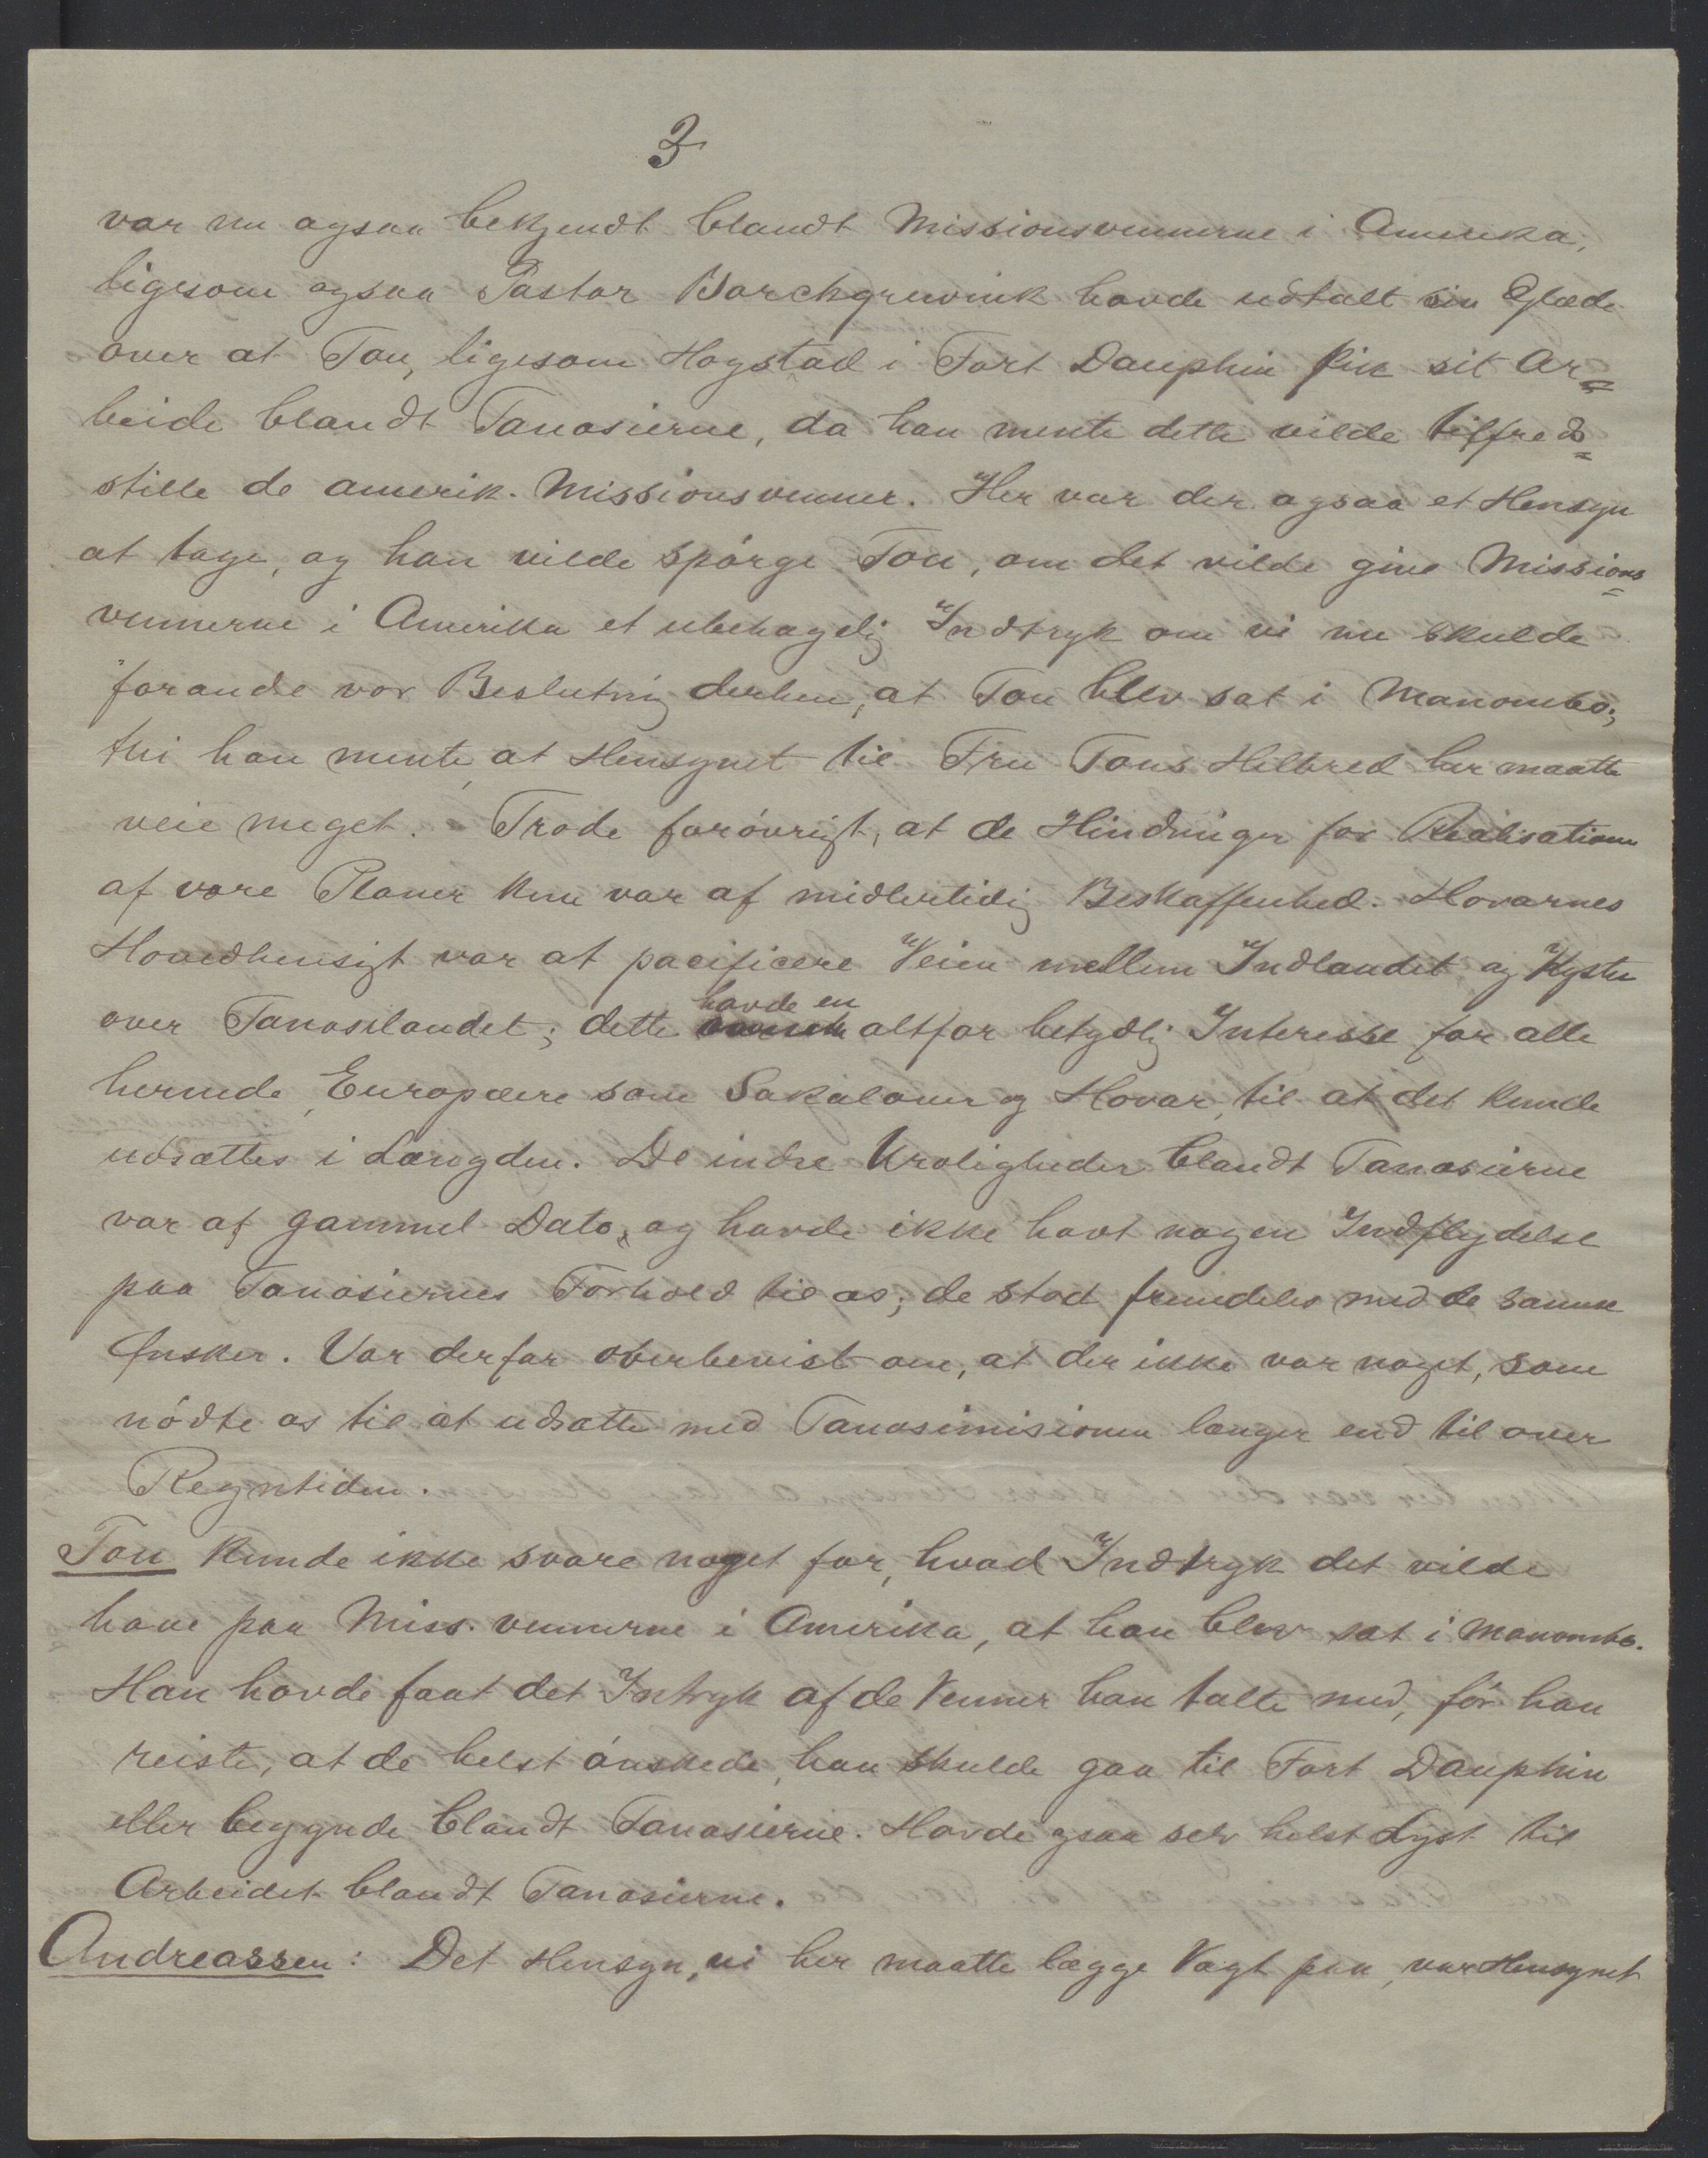 3
var nu ogsaa bekjendt blandt Missionsvennerne i Amerika,
ligesom ogsaa Pastor Borchgrevink havde udtalt sin Glæde
over at Tou, ligesom Hogstad i Fort Dauphin fik sit Ar=
beide blandt Tanosierne, da han mente dette vilde tilfreds=
stille de amerik. Missionsvenner. Her var der ogsaa et Hensyn
at tage, og han vilde spørge Tou, om det vilde give Missions=
vennerne i Amerika et ubehagelig Indtryk om vi nu skulde
forande vor Beslutning derhen, at Tou blev sat i Manombo;
thi han mente, at Hensynet til Fru Tous Helbred her maatte
veie meget. - Trode forøvrigt, at de Hindringer for Realisationen
af vore Planer kun var af midlertidig Beskaffenhed. Hovarnes
Hovedhensigt var at pacificere Veien mellem Indlandet og Kysten
over Tanosilandet; dette havde en altfor betydlig Interesse for alle
hernede, Europæere som Sakalaver og Hovar, til at det kunde
udsættes i Længden. De indre Uroligheder blandt Tanosierne
var af gammel Dato, og havde ikke havt nogen Indflydelse
paa Tanosiernes Forhold til os; de stod fremdeles med de samme
Ønsker. Var derfor overbevist om, at der ikke var noget, som
nødte os til at udsætte med Tanosimisionen længer end til over
Regntiden.
Tou kunde ikke svare noget for, hvad Indtryk det vilde
have paa Miss. vennerne i Amerika, at han blev sat i Manombo.
Han havde faat det Intryk af de Venner han talte med, før han
reiste, at de helst ønskede, han skulde gaa til Fort Dauphin
eller begynde blandt Tanosierne. Havde ogsaa selv helst Lyst til
Arbeidet blandt Tanosierne.
Andreassen: Det Hensyn, vi her maatte lægge Vægt paa, var Hensynet